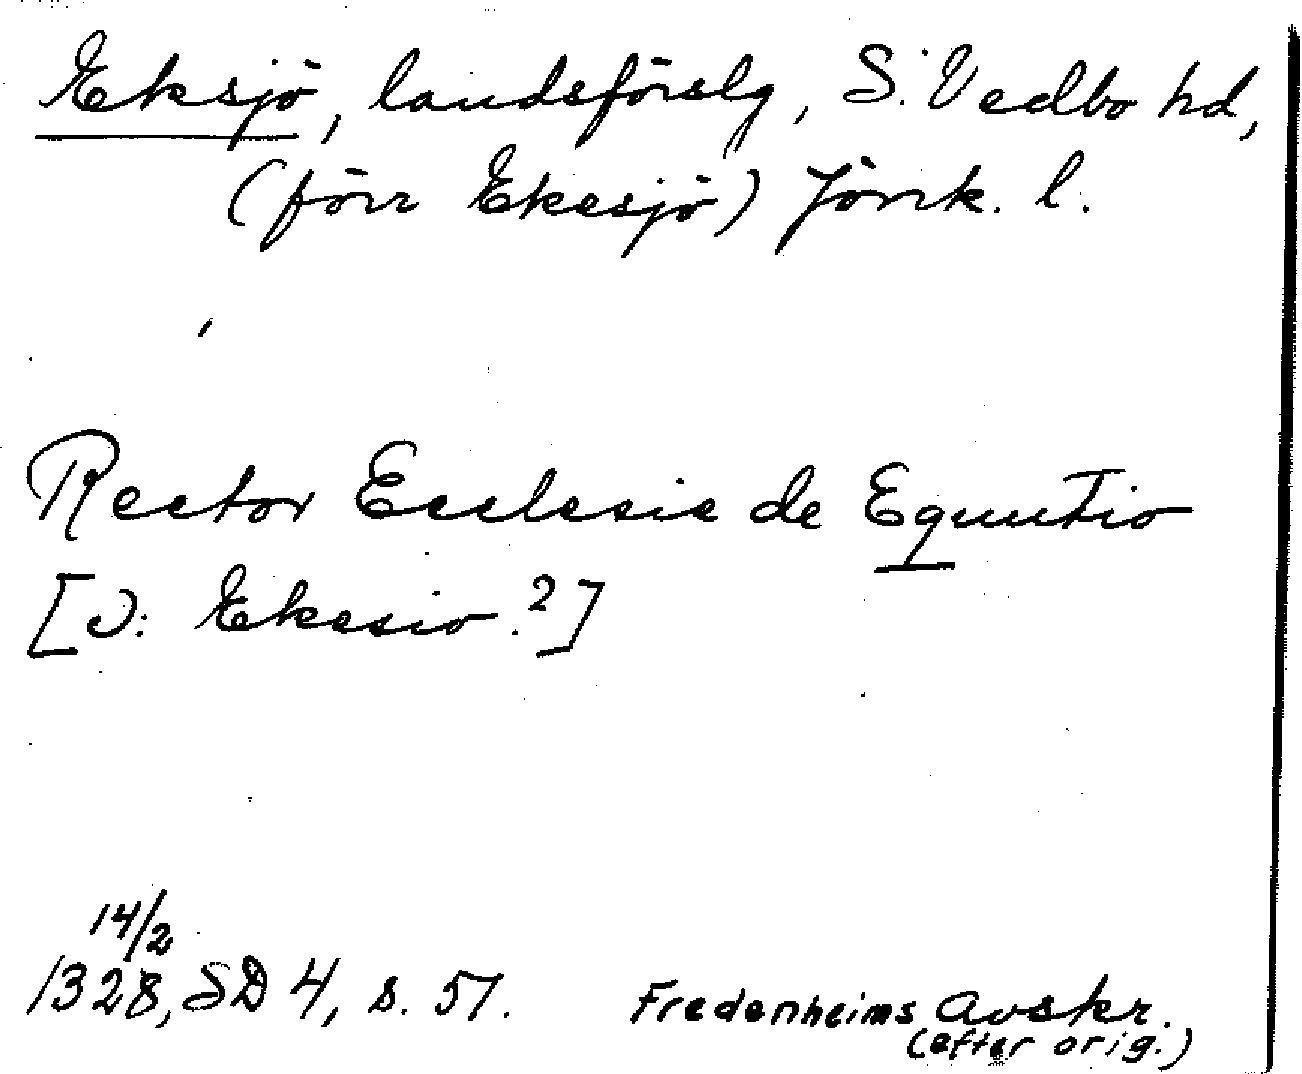 Eksjö, landsförslg, S. Vedbo hd,
(förr Ekesjö) Jönk. l.
Rector Ecclesie de Equutio
[ɔ: Ekesio.?]
14/2
1328, SD 4, s. 51. Fredenheims avskr.
(efter orig.)